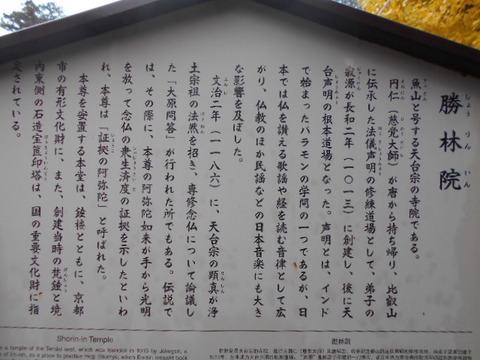 勝林院
しょうりんいん
魚山と号する天台宗の寺院である。
円仁(慈覚大師)が唐から持ち帰り、比叡山
に伝承した法儀声明の修練道場として、弟子の
寂源が長和二年(一〇一三)に創建し、後に天
台声明の根本道場となった。声明とは、インド
で始まったバラモンの学問の一つであるが、日
本では仏を讃える歌謡や経を読む音律として広
がり、仏教のほか民謡などの日本音楽にも大き
な影響を及ぼした。
文治二年(一一八六)に、天台宗の顕真が浄
土宗祖の法然を招き、専修念仏について論議し
た「大原問答」が行われた所でもある。伝説で
は、その際に、本尊の阿弥陀如来が手から光明
を放って念仏の衆生済度の証拠を示したといわ
れ、本尊は「証拠の阿弥陀」と呼ばれた。
本尊を安置する本堂は、鐘楼とともに、京都
市の有形文化財に、また、創建当時の梵鐘と境
内東側の石造宝篋印塔は、国の重要文化財に指
定されている。
Shorin-in Temple
胜林院